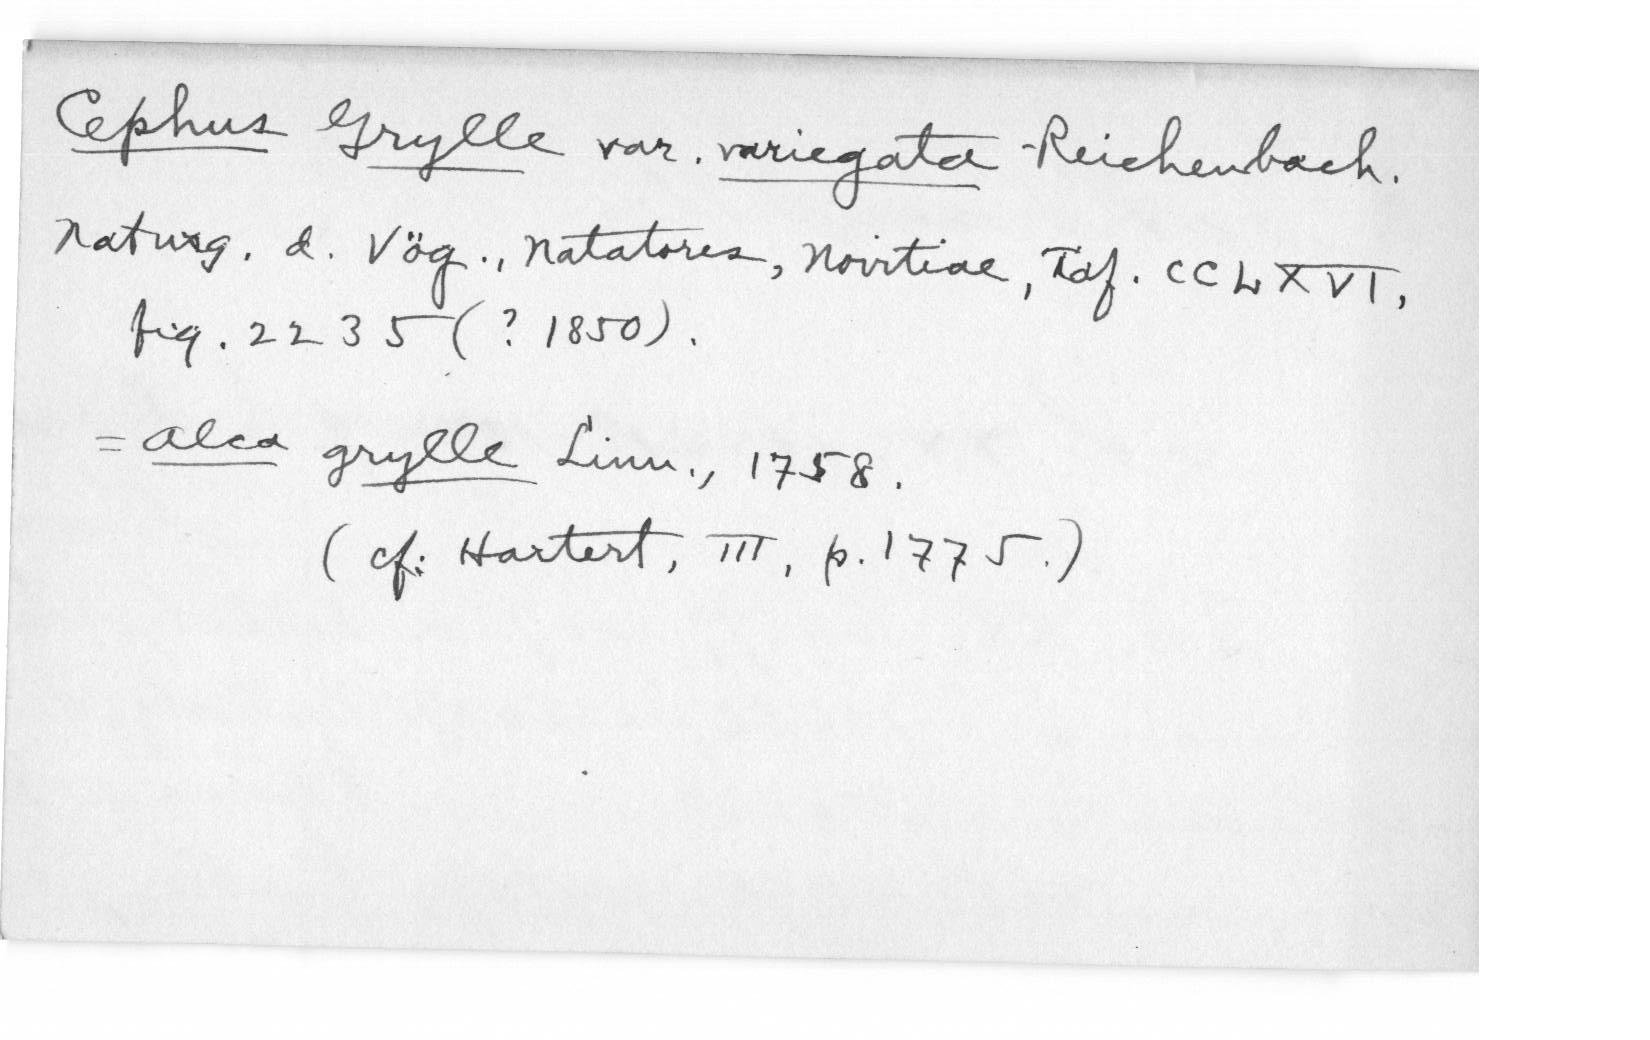 Cephus Grylle var. variegata Reichenbach.
Naturg. d. Vög., Natatores, Novitiae, Taf. CCLXVI,
fig. 2235 (? 1850).
= Alca grylle Linn., 1758.
(cf. Hartert, III, p. 1775.)